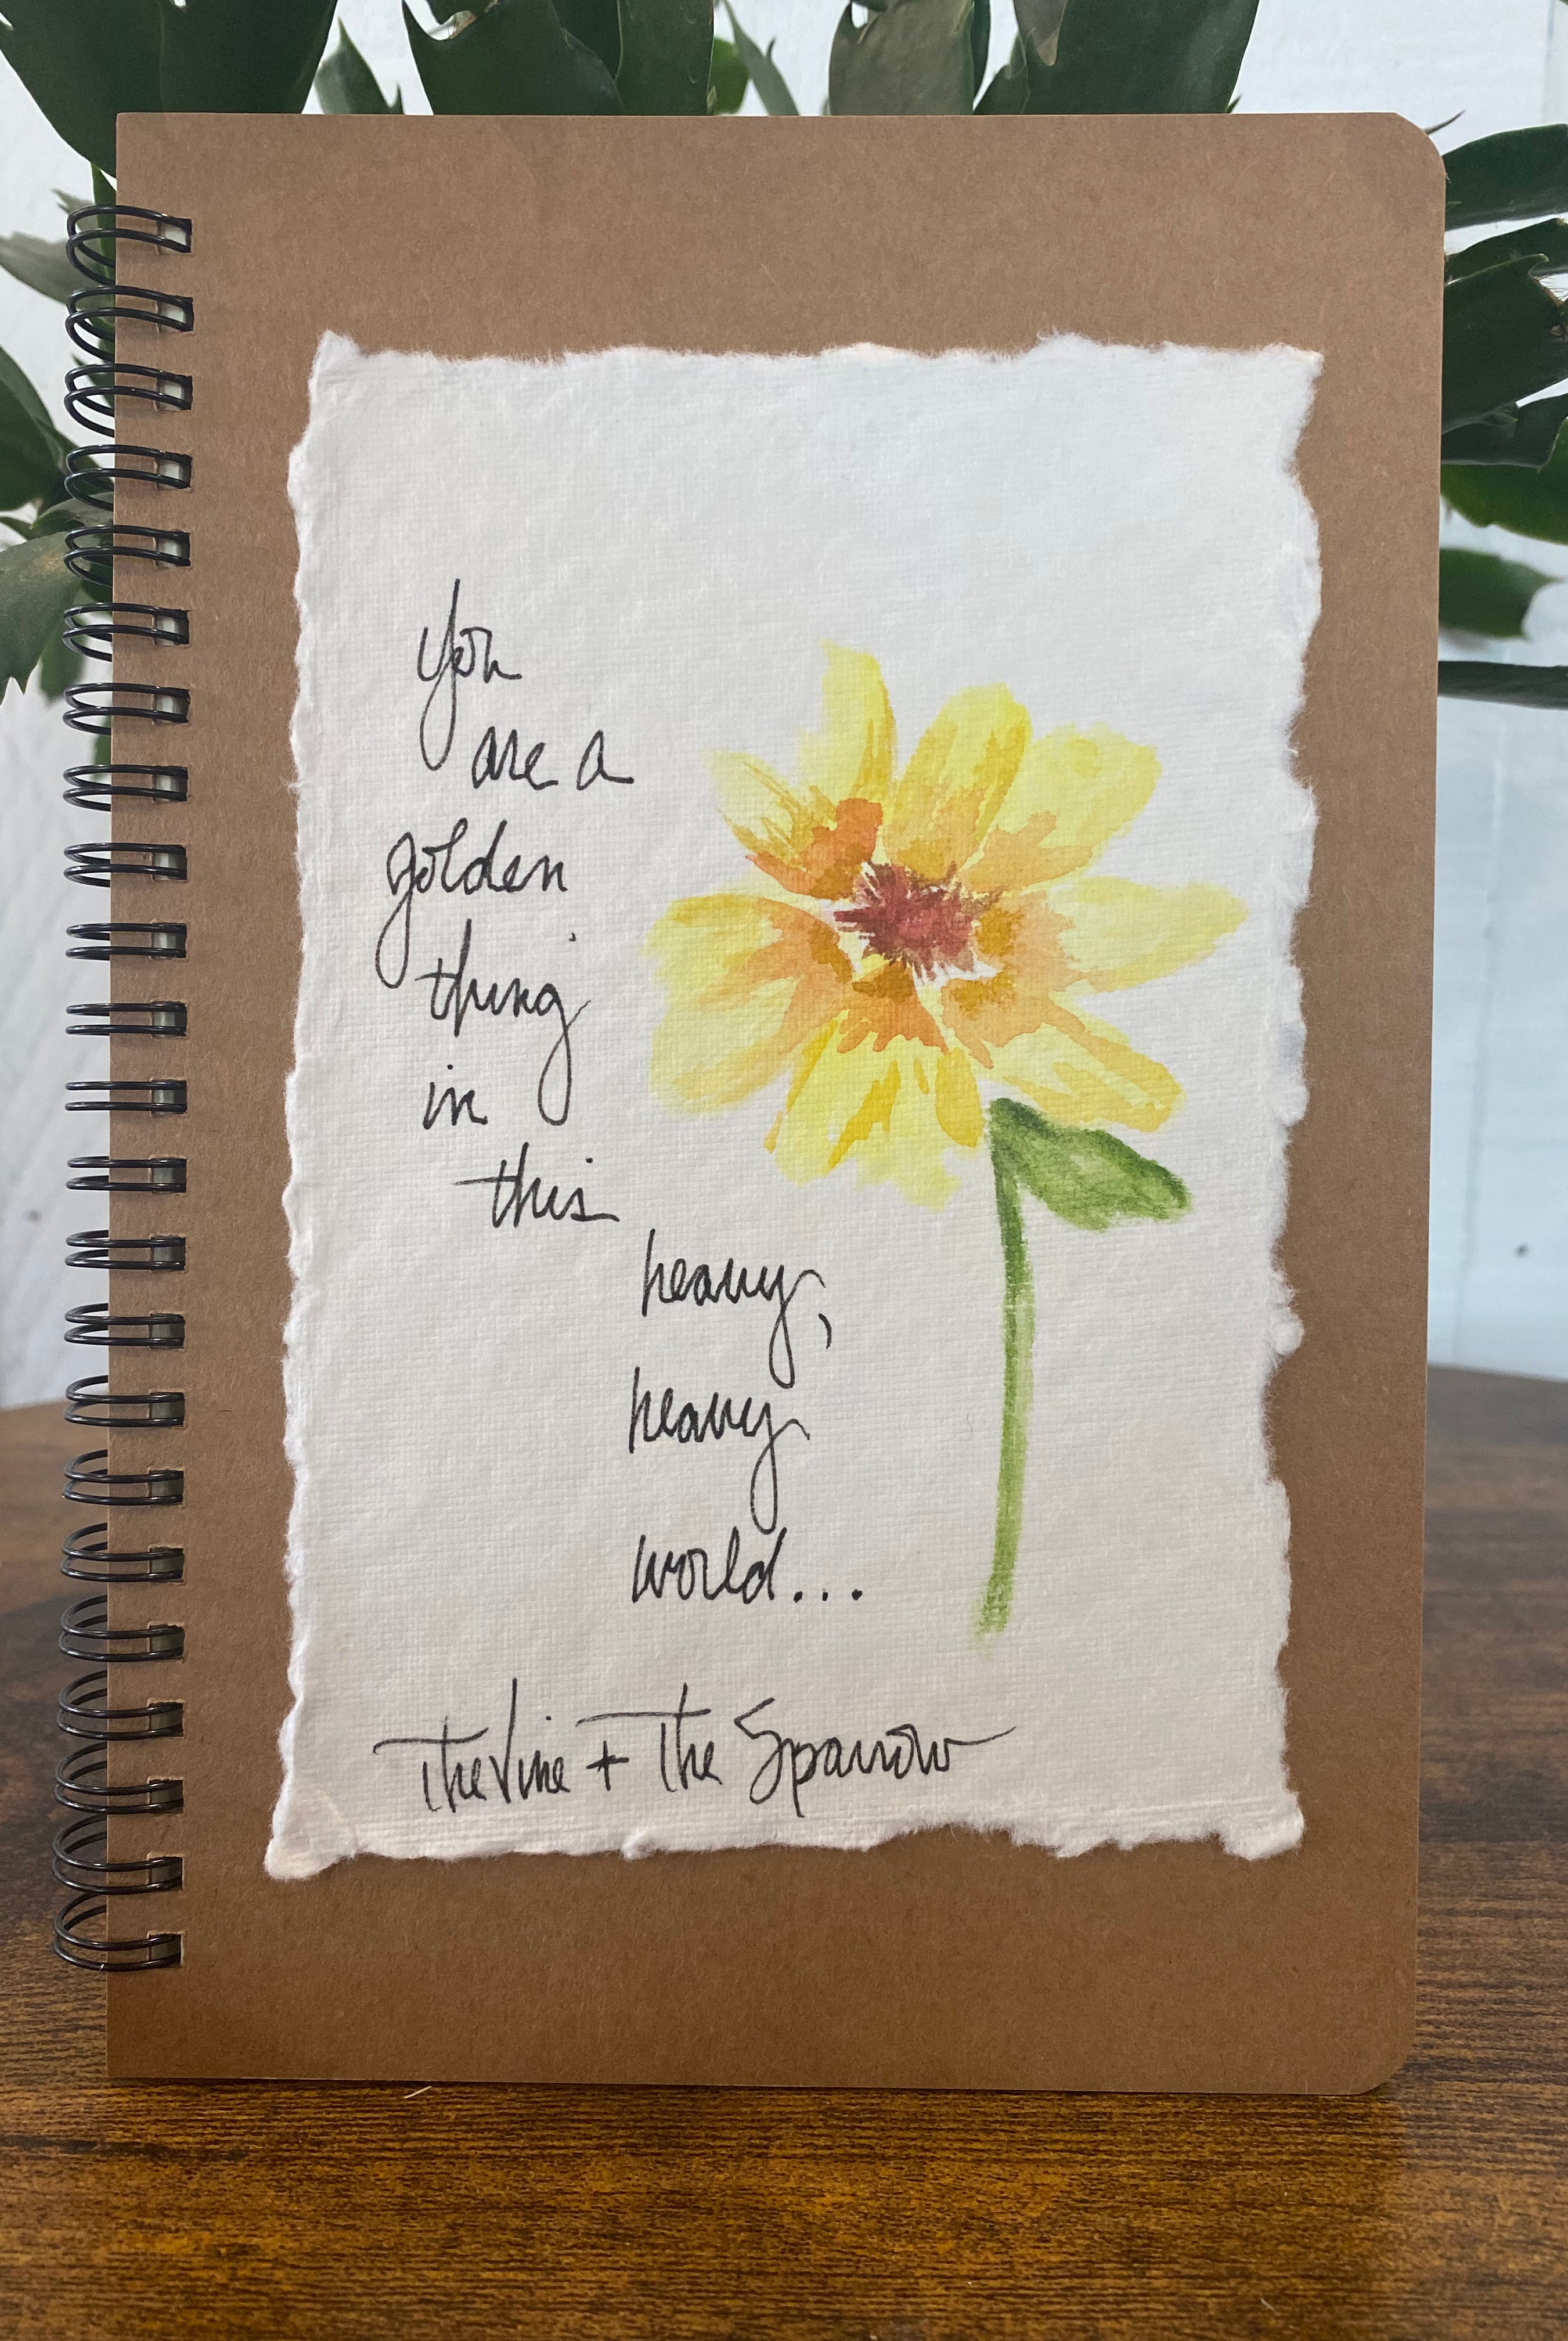 you
are a
golden
thing
in
this
heavy,
heavy
world...
The Vine + The Sparrow